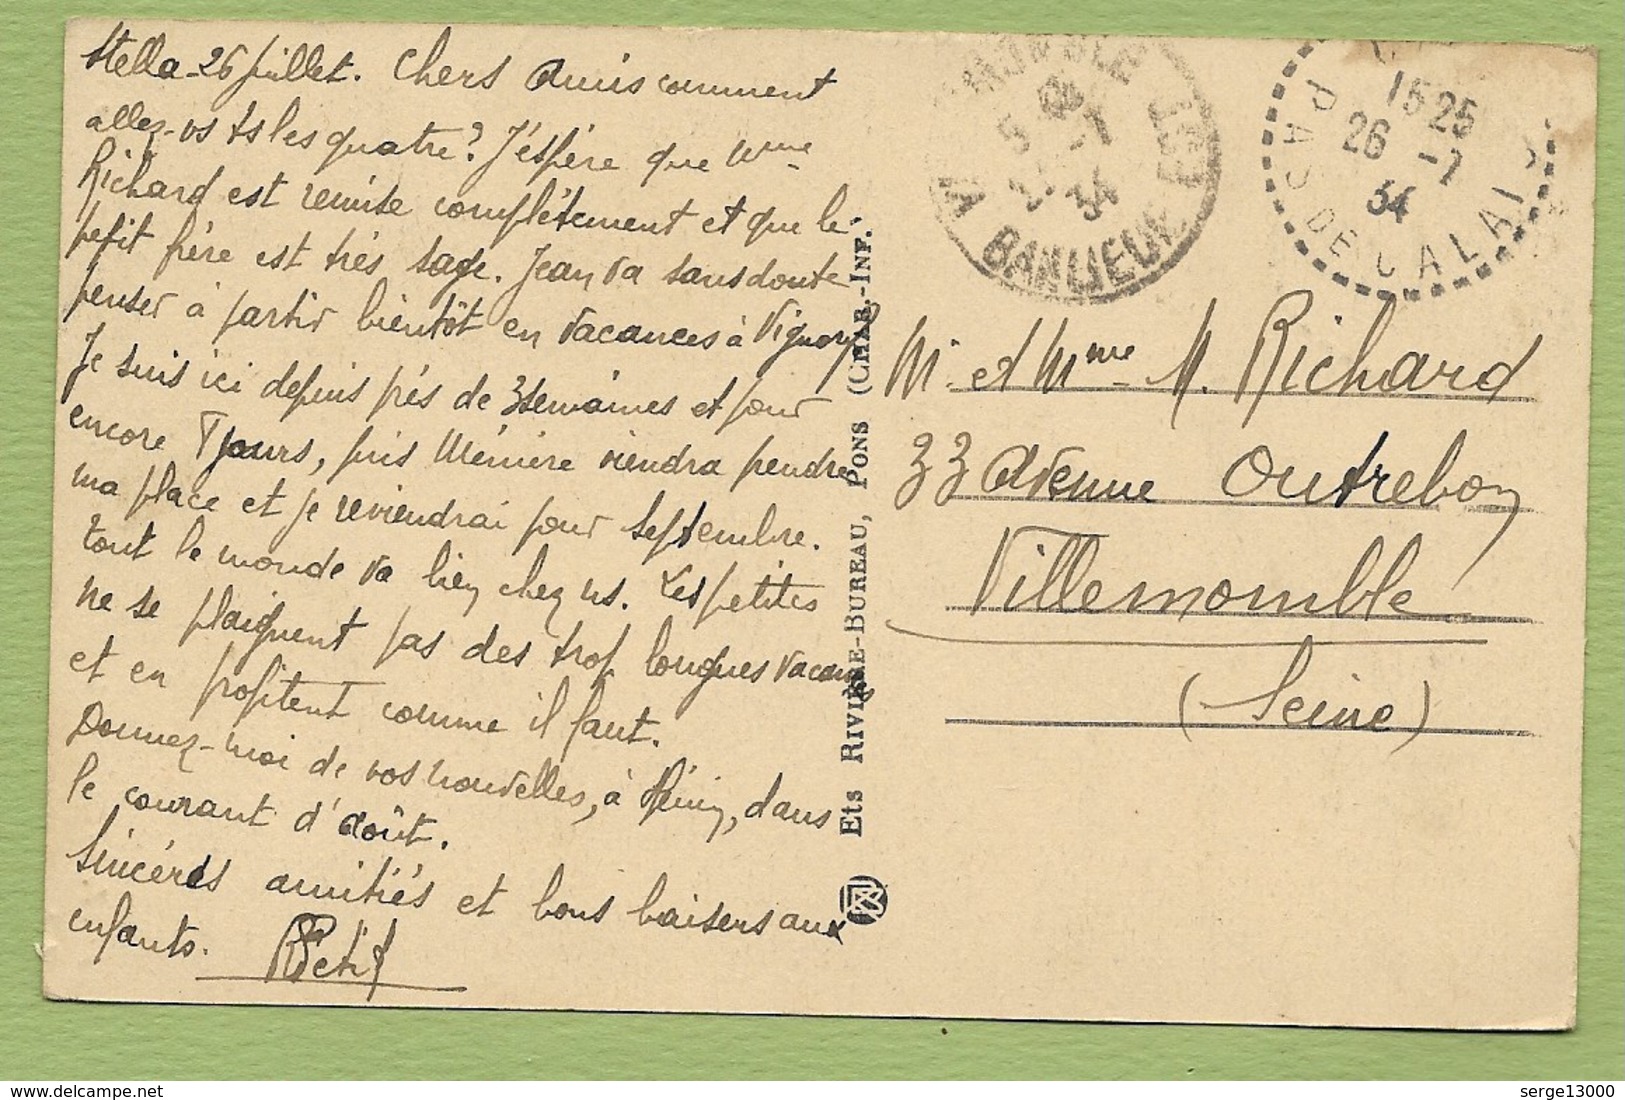 Stella - 26 juillet. Chers Amis comment
allez-vs ts les quatre? J'éspère que Mme
Richard est remise complètement et que le
petit frère est très sage. Jean va sans doute
penser à partir bientôt en vacances à Vignory
Je suis ici depuis près de 3 semaines et pour
encore 8 jours, puis Mémère viendra prendre
ma place et je reviendrai pour Septembre.
tout le monde va bien chez ns. Les petites
ne se plaignent pas des trop longues vacances
et en profitent comme il faut.
Donnez-moi de vos nouvelles, à Hénin, dans
le courant d'août.
Sincères amitiés et bons baisers aux
enfants.
RPetit
Ets RIVIÈRE-BUREAU, PONS (CHAR.-INF.
5
-7
34
BANLIEUE EST
1525
26 -7
34
PAS DE CALAIS
Mr et Mme M. Richard
33 Avenue Outrebon
Villemomble
(Seine)
delcampe.net
serge13000